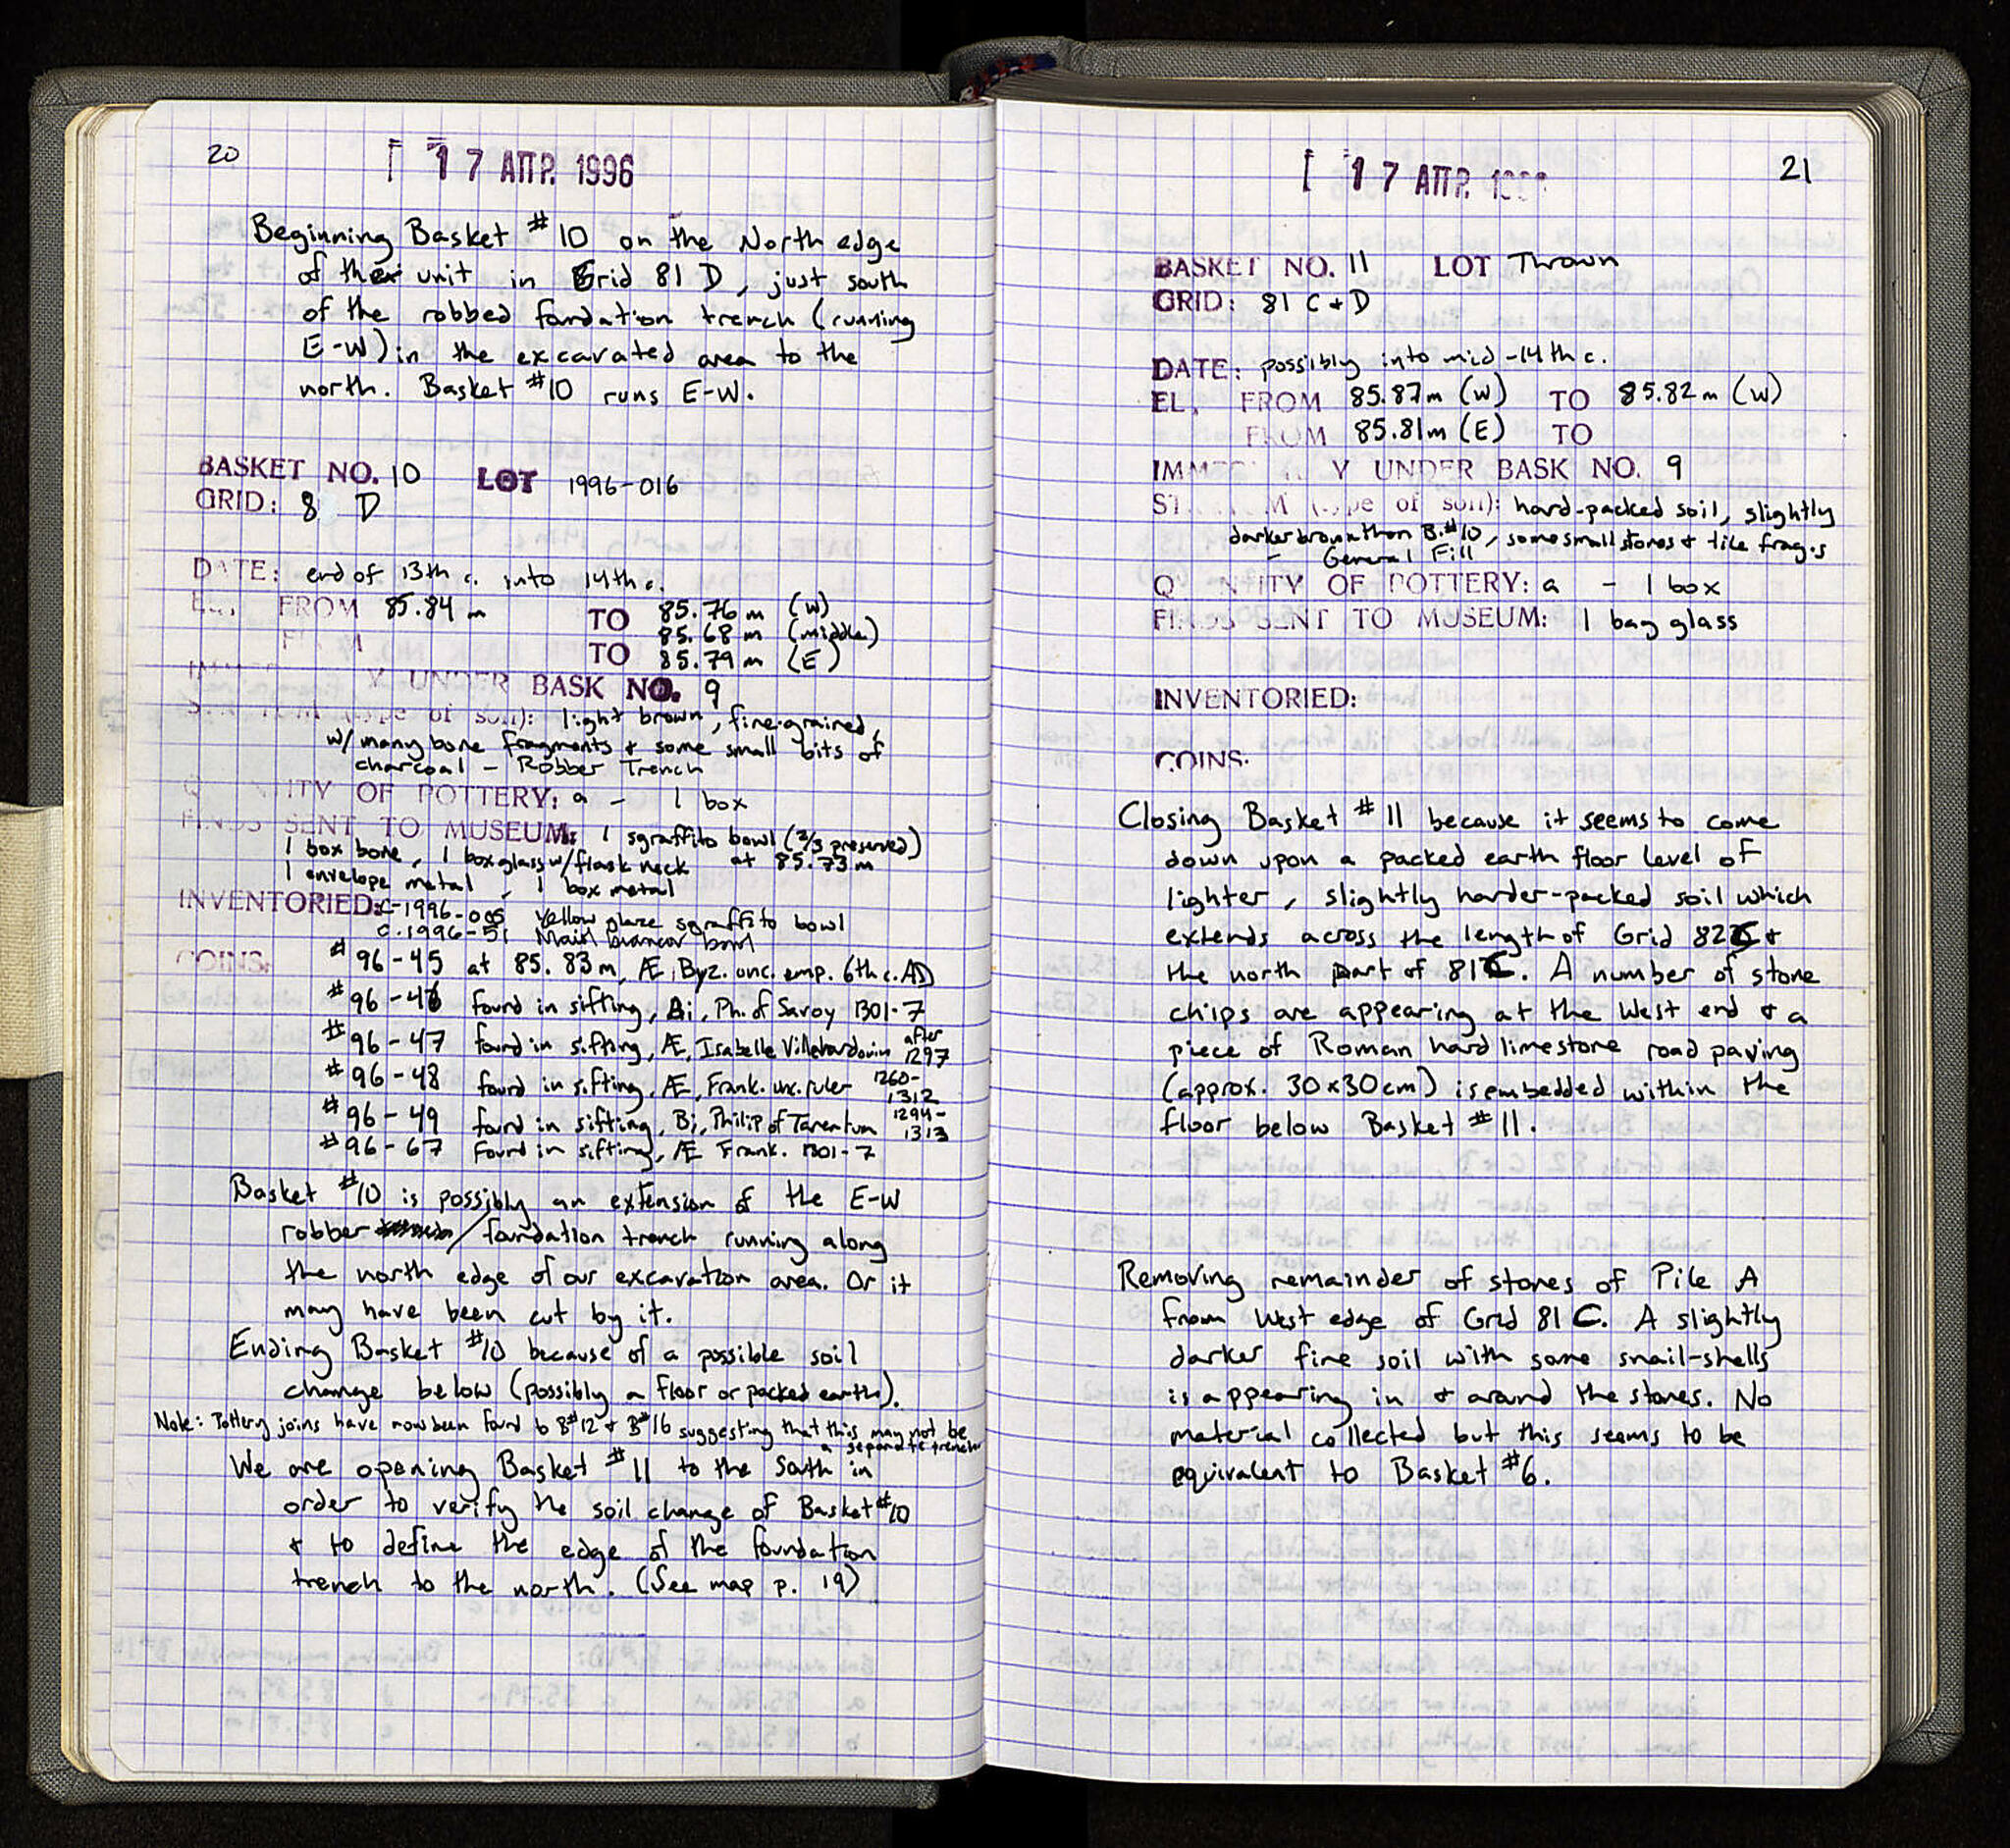 20
17 ΑΠΡ. 1996
Beginning Basket #10 on the North edge
of the unit in Grid 81 D, just south
of the robbed foundation trench (running
E-W) in the excavated area to the
north. Basket #10 runs E-W.
BASKET NO. 10 LOT 1996-016
GRID: 8 D
DATE: end of 13th c. into 14th c.
EL. FROM 85.84 m TO 85.76 m (W)
85.68 m (middle)
TO 85.79 m (E)
Y UNDER BASK NO. 9
type of soil): light brown, fine-grained,
w/ many bone fragments & some small bits of
charcoal - Robber Trench
ITY OF POTTERY: a - 1 box
FINDS SENT TO MUSEUM: 1 sgraffito bowl (2/3 preserved)
1 box bone, 1 box glass w/ flask neck at 85.73 m
1 envelope metal, 1 box metal
INVENTORIED: C-1996-005 Yellow glaze sgraffito bowl
C.1996-51 bowl
COINS: #96-45 at 85.83m, Æ, Byz. unc. emp. 6th c. AD
#96-46 found in sifting, Bi, Ph. of Savoy 1301-7
#96-47 found in sifting, Æ, Isabelle Villehardouin after 1297
#96-48 found in sifting, Æ, Frank. unc. ruler 1260-1312
#96-49 found in sifting, Bi, Philip of Tarentum 1294-1313
#96-67 found in sifting, Æ Frank. 1301-7
Basket #10 is possibly an extension of the E-W
robber / foundation trench running along
the north edge of our excavation area. Or it
may have been cut by it.
Ending Basket #10 because of a possible soil
change below (possibly a floor or packed earth).
Note: Pottery joins have now been found to B#12 & B#16 suggesting that this may not be
a separate trench
We are opening Basket #11 to the South in
order to verify the soil change of Basket #10
& to define the edge of the foundation
trench to the north. (See map p. 19)
17 ΑΠΡ.
21
BASKET NO. 11 LOT Thrown
GRID: 81 C & D
DATE: possibly into mid-14th c.
EL. FROM 85.87m (W) TO 85.82 m (W)
FROM 85.81m (E) TO
Y UNDER BASK NO. 9
type of soil): hard-packed soil, slightly
darker brown than B.#10, some small stones & tile frags
- General Fill
ITY OF POTTERY: a - 1 box
FINDS SENT TO MUSEUM: 1 bag glass
INVENTORIED:
COINS:
Closing Basket #11 because it seems to come
down upon a packed earth floor level of
lighter, slightly harder-packed soil which
extends across the length of Grid 82C &
the north part of 81C. A number of stone
chips are appearing at the West end & a
piece of Roman hard limestone road paving
(approx. 30x30cm) is embedded within the
floor below Basket #11.
Removing remainder of stones of Pile A
from West edge of Grid 81 C. A slightly
darker fine soil with some snail-shells
is appearing in & around the stones. No
material collected but this seems to be
equivalent to Basket #6.